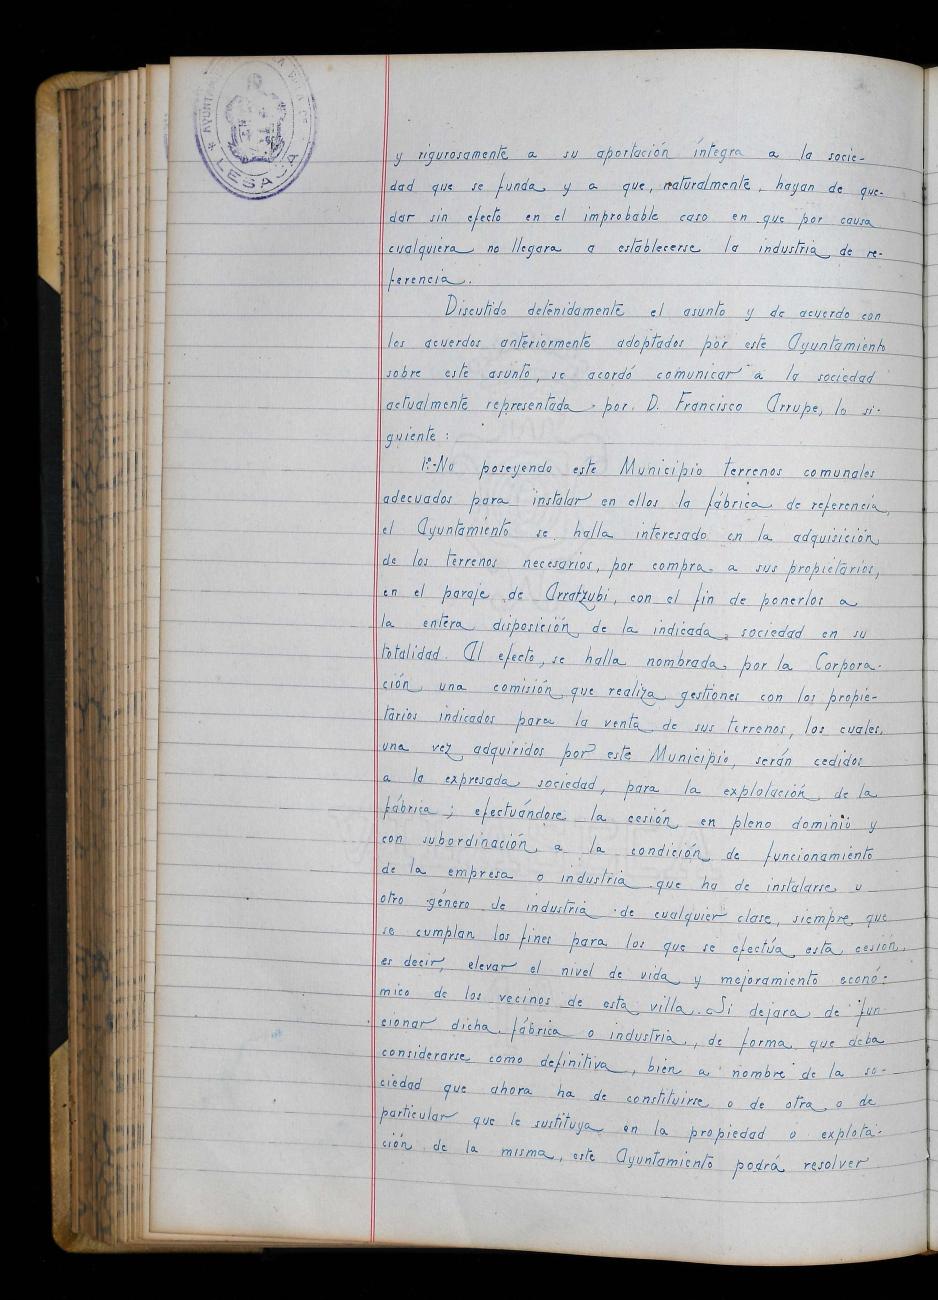 LESACA
y rigurosamente a su aportación íntegra a la socie-
dad que se funda y a que, naturalmente, hayan de que-
dar sin efecto en el improbable caso en que por causa
cualquiera no llegara a establecerse la industria de re-
ferencia.
Discutido detenidamente el asunto y de acuerdo con
los acuerdos anteriormente adoptados por este Ayuntamiento
sobre este asunto, se acordó comunicar a la sociedad
actualmente representada por D. Francisco Arrupe, lo si-
guiente:
1º-No poseyendo este Municipio terrenos comunales
adecuados para instalar en ellos la fábrica de referencia,
el Ayuntamiento se halla interesado en la adquisición
de los terrenos necesarios, por compra a sus propietarios,
en el paraje de Arratzubi, con el fin de ponerlos a
la entera disposición de la indicada sociedad en su
totalidad. Al efecto, se halla nombrada por la Corpora-
ción una comisión que realiza gestiones con los propie-
tarios indicados para la venta de sus terrenos, los cuales,
una vez adquiridos por este Municipio, serán cedidos
a la expresada sociedad, para la explotación de la
fábrica; efectuándose la cesión en pleno dominio y
con subordinación a la condición de funcionamiento
de la empresa o industria que ha de instalarse u
otro género de industria de cualquier clase, siempre que
se cumplan los fines para los que se efectúa esta cesión,
es decir, elevar el nivel de vida y mejoramiento econó-
mico de los vecinos de esta villa. Si dejara de fun
cionar dicha fábrica o industria, de forma que deba
considerarse como definitiva, bien a nombre de la so-
ciedad que ahora ha de constituirse o de otra o de
particular que le sustituya en la propiedad o explota-
ción de la misma, este Ayuntamiento podrá resolver